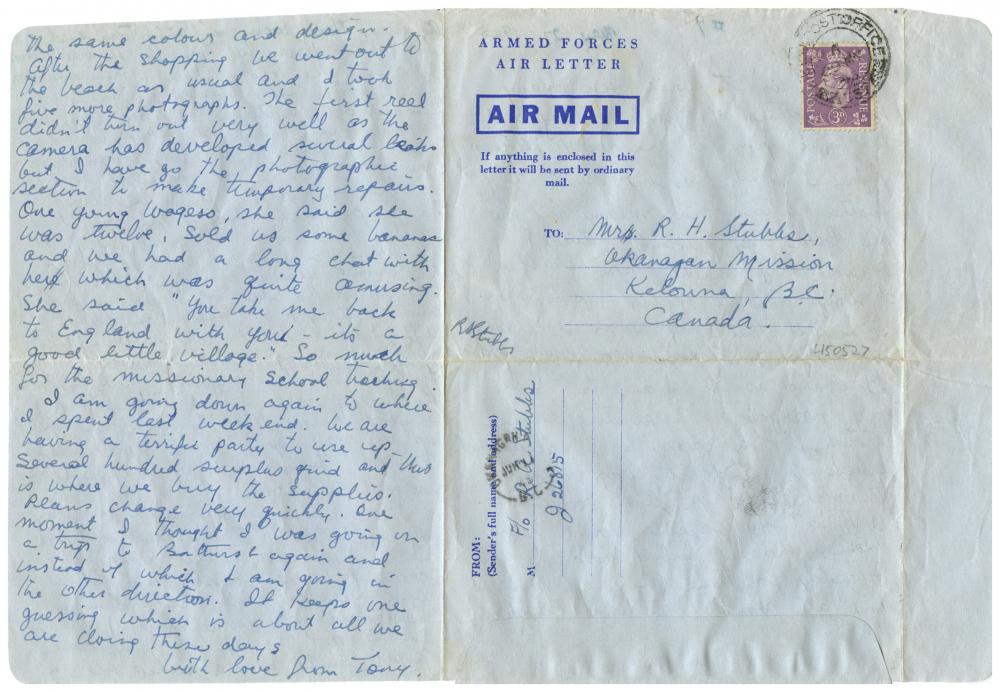 the same colour and design.
After the shopping we went out to
the beach as usual and I took
five more photographs. The first reel
didn't turn out very well as the
camera has developed several leaks
but I have go the photographic
section to make temporary repairs.
One young wogess, she said she
was twelve, sold us some bananas
and we had a long chat with
her which was quite amusing.
She said "You take me back
to England with you - its a
good little village." So much
for the missionary School teaching.
I am going down again to where
I spent last weekend. We are
having a terrific party to use up
several hundred surplus quid and this
is where we buy the supplies.
Plans change very quickly. One
moment I thought I was going on
a trip to Bathurst again and
instead of which I am going in
the other direction. It keeps one
guessing which is about all we
are doing these days
With love from Tony.
ARMED FORCES
AIR LETTER
AIR MAIL
If anything is enclosed in this
letter it will be sent by ordinary
mail.
POST OFFICE
POSTAGE REVENUE
3D
TO: Mrs. R. H. Stubbs,
Okanagan Mission
Kelowna, B.C.
Canada.
RAStubbs
450527
FROM:
(Sender's full name and address)
M F/O R.A. Stubbs
J 26815
JUN
B.C.